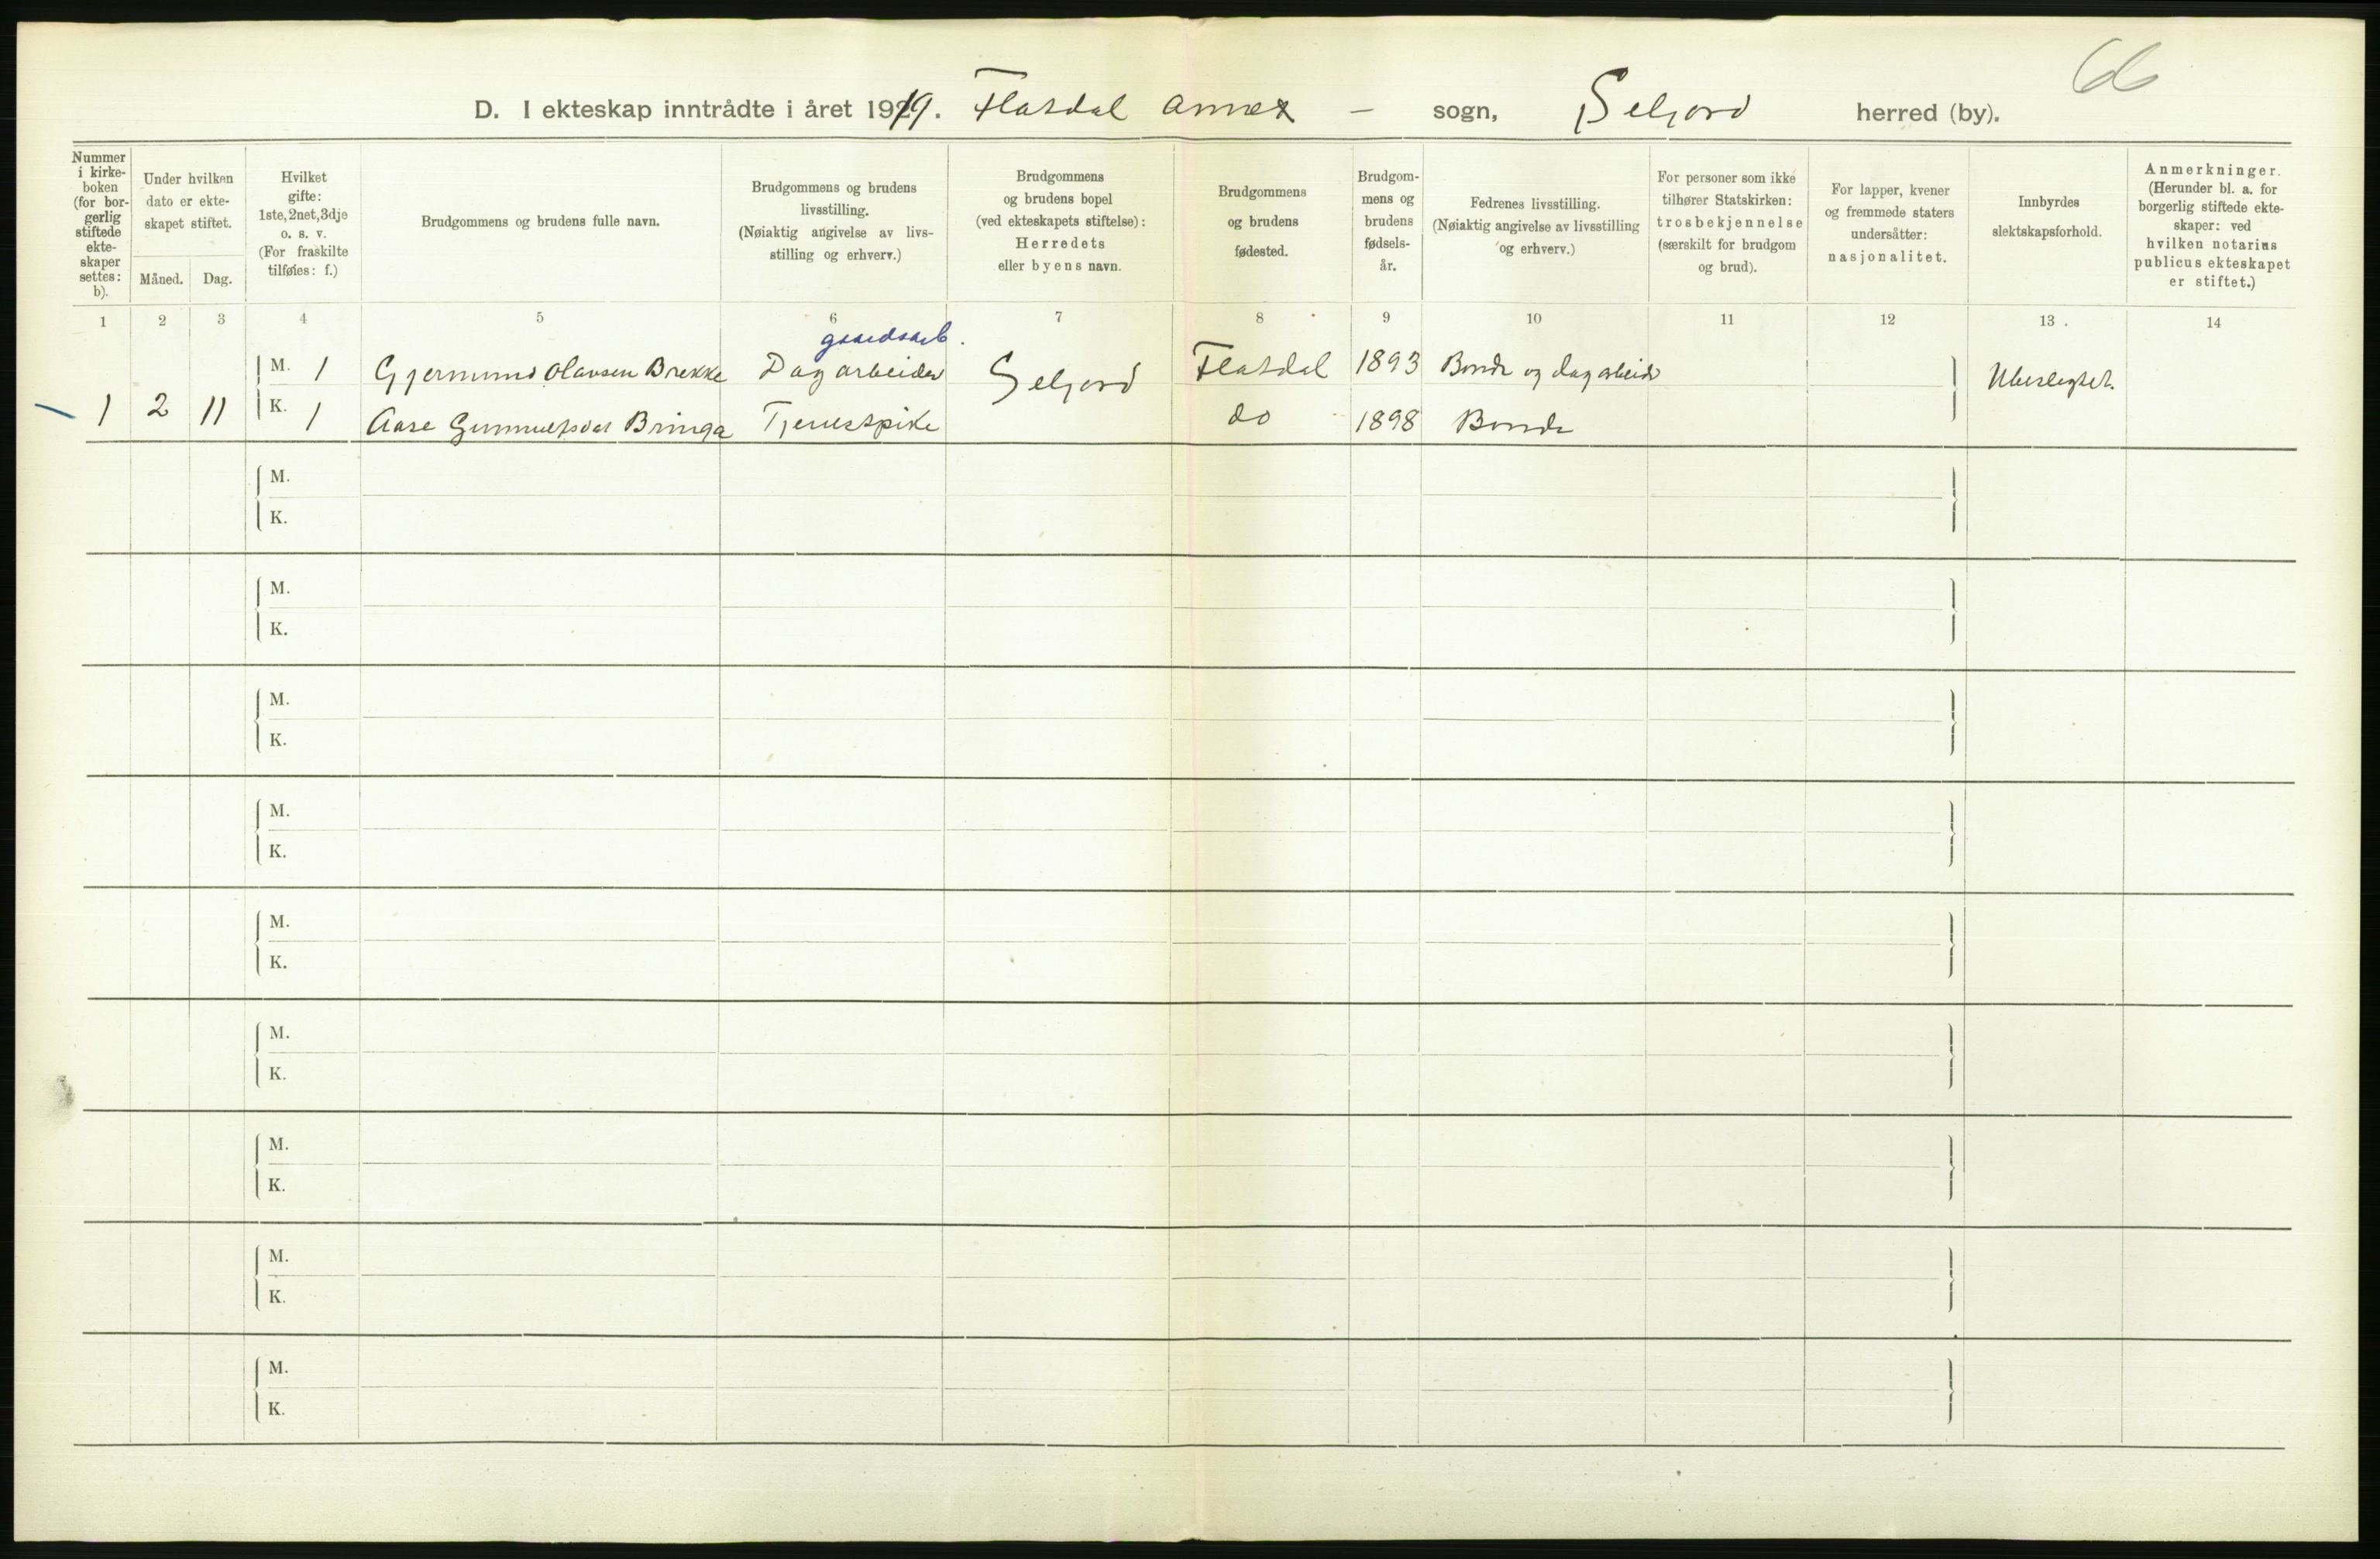 66
D. I ekteskap inntrådte i året 1919. Flatdal annex — sogn, Seljord herred (by).
Nummer i kirke-boken (for bor-gerlig stiftede ekte-skaper settes: b).
Under hvilken dato er ekte-skapet stiftet.
Måned. Dag.
Hvilket gifte: 1ste, 2net, 3dje o. s. v. (For fraskilte tilføies: f.)
Brudgommens og brudens fulle navn.
Brudgommens og brudens livsstilling. (Nøiaktig angivelse av livs-stilling og erhverv.)
Brudgommens og brudens bopel (ved ekteskapets stiftelse): Herredets eller byens navn.
Brudgommens og brudens fødested.
Brudgom-mens og brudens fødsels-år.
Fedrenes livsstilling. (Nøiaktig angivelse av livsstilling og erhverv.)
For personer som ikke tilhører Statskirken: trosbekjennelse (særskilt for brudgom og brud).
For lapper, kvener og fremmede staters undersåtter: nasjonalitet.
Innbyrdes slektskapsforhold.
Anmerkninger. (Herunder bl. a. for borgerlig stiftede ekte-skaper: ved hvilken notarius publicus ekteskapet er stiftet.)
1 2 3 4 5 6 7 8 9 10 11 12 13 14
gaardsarb.
M. 1 Gjermund Olavsen Brekke Dagarbeider Seljord Flatdal 1893 Bonde og dagarbeider Ubeslegtet.
1 2 11 K. 1 Aase Gunnulfsdat Bringa Tjenestpike do 1898 Bonde
M.
K.
M.
K.
M.
K.
M.
K.
M.
K.
M.
K.
M.
K.
M.
K.
M.
K.